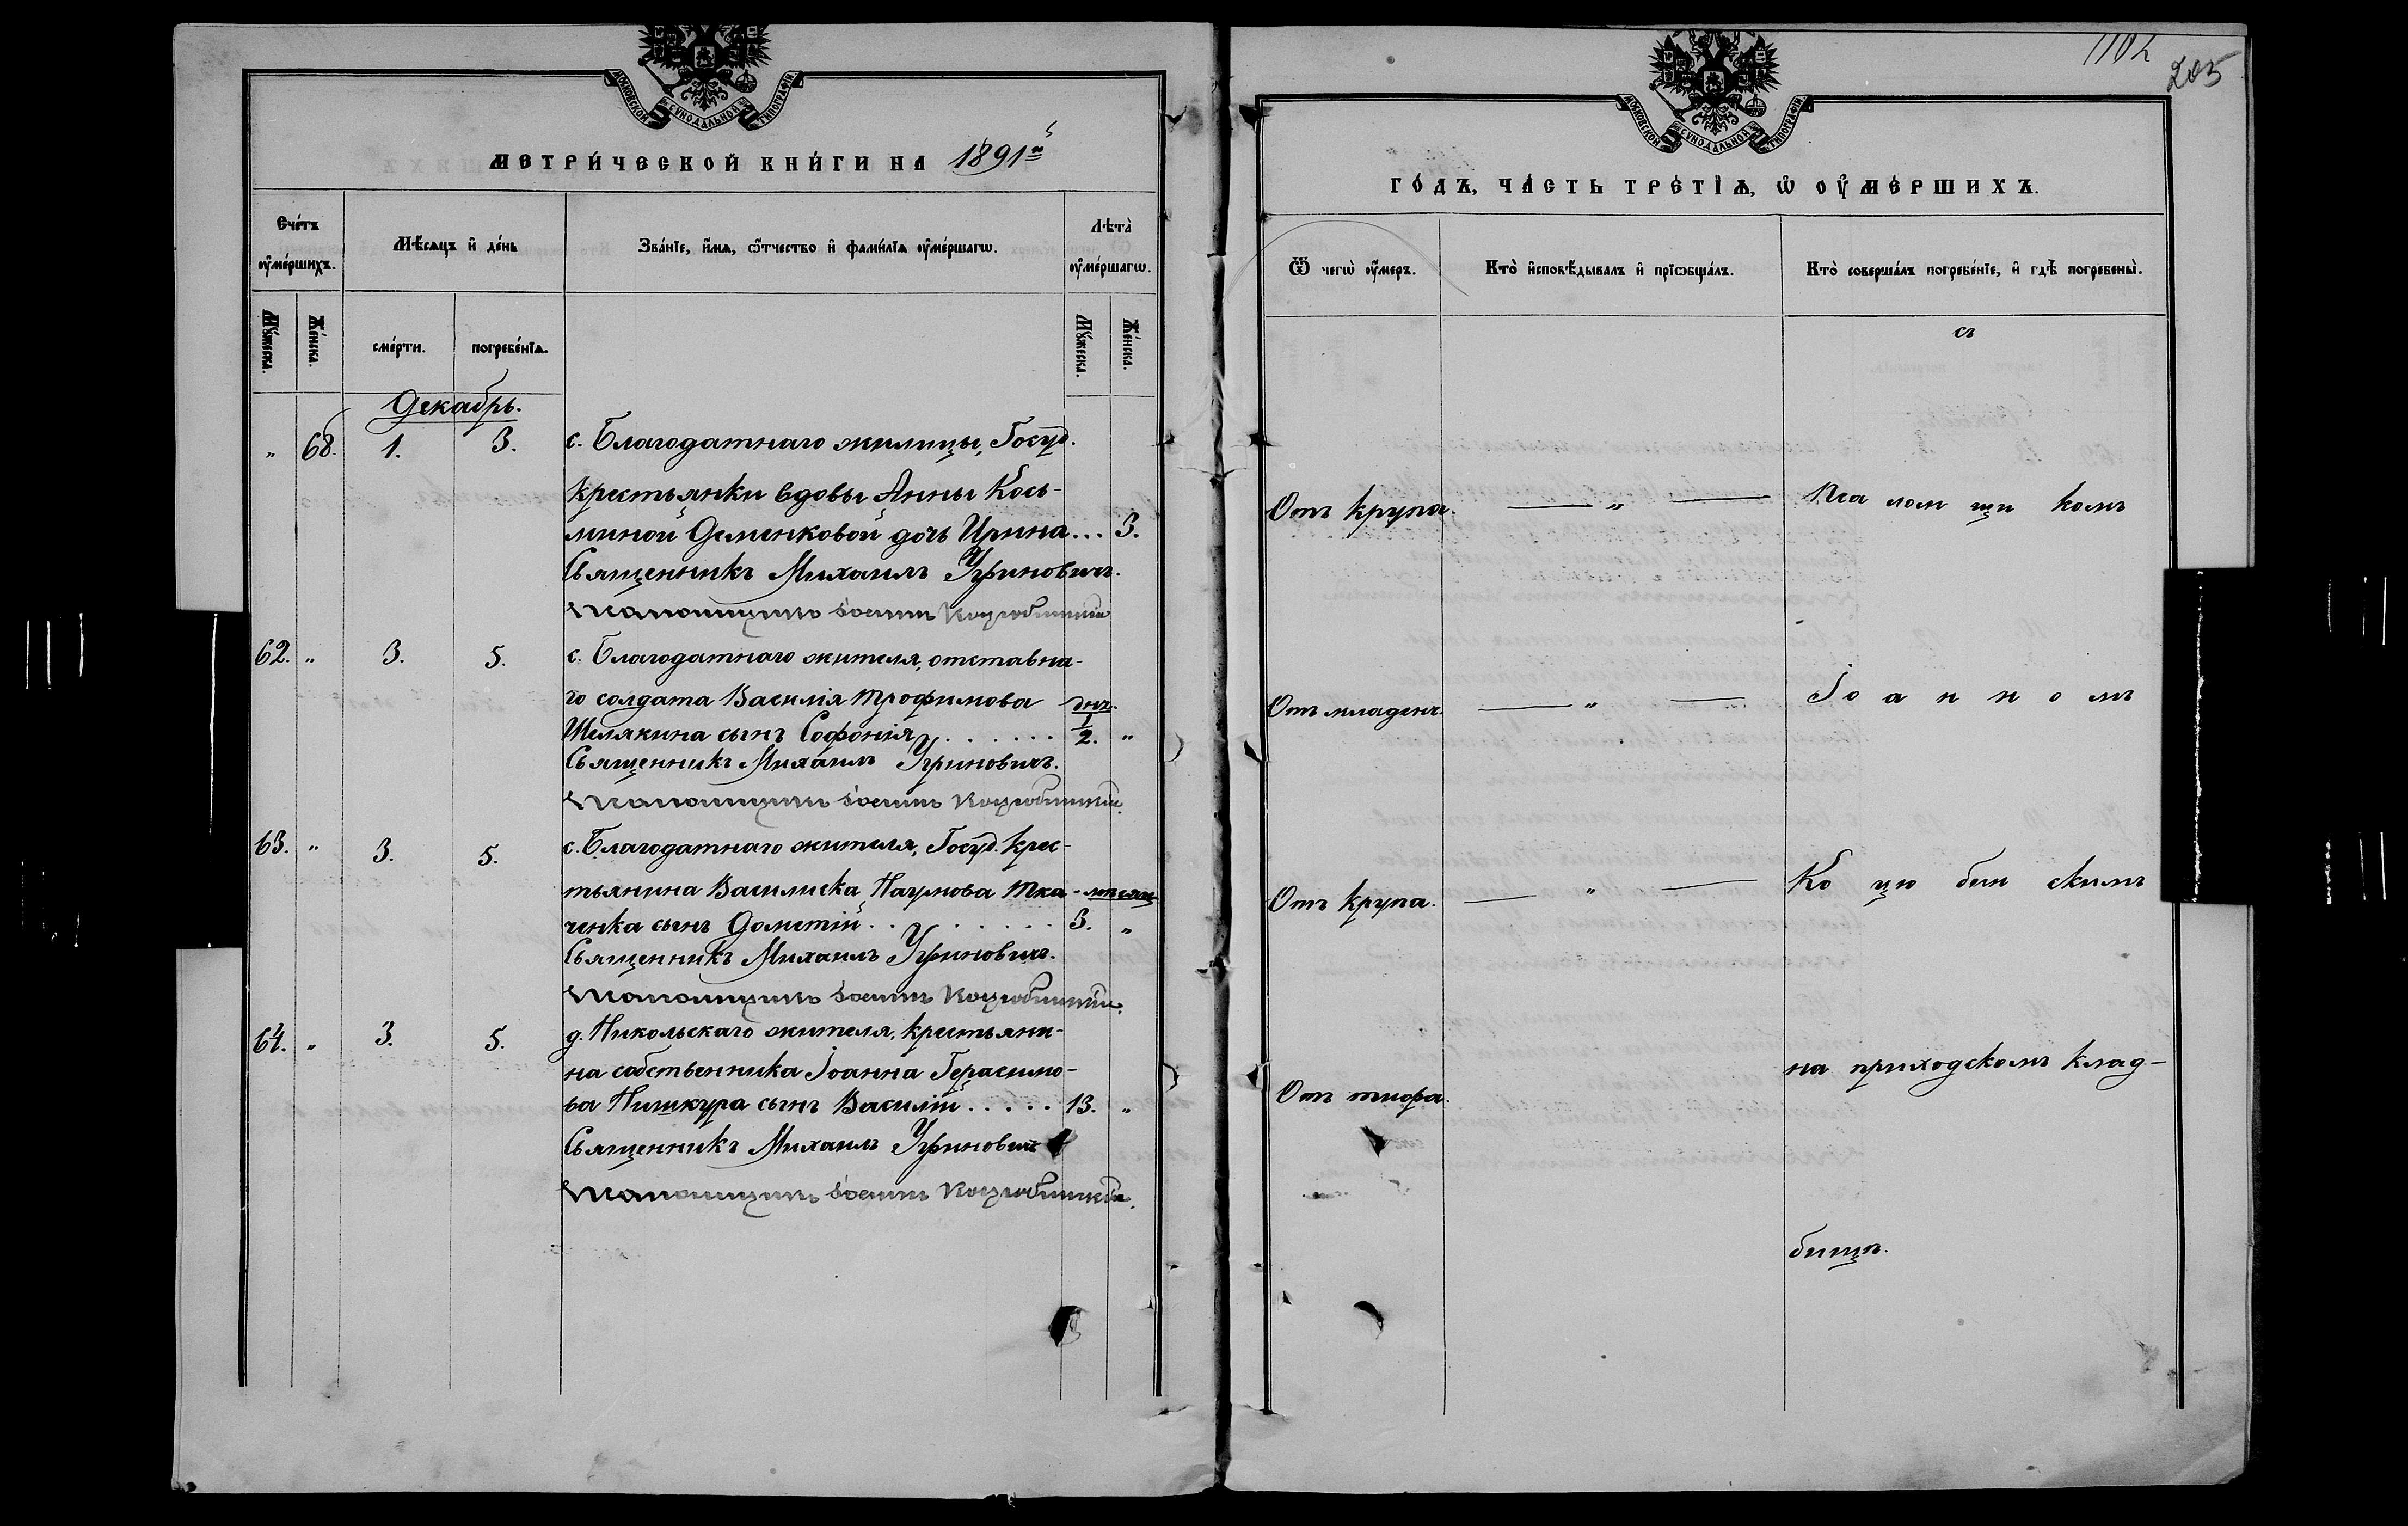 МОСКОВСКОЙ СѴНОДАЛЬНОЙ ТИПОГРАФІИ
МЕТРИ́ЧЕСКОЙ КНИ́ГИ НА 1891й
Счéтъ ᲂу҆мéршихъ.
Мѣ́сяцъ и҆ дéнь
Звáнїе, и҆́мѧ, ѻ҆́тчество и҆ фамѝлїѧ ᲂу҆мéршагѡ.
Лѣ́та ᲂу҆мéршагѡ.
Мꙋ́жеска.
Жéнска.
смéрти.
погребéнїѧ.
Мꙋ́жеска.
Жéнска.
Декабрь.
„ 68. 1. 3. с. Благодатнаго жилицы, Госуд.
крестьянки вдовы Анны Кось-
миной Деменковой дочь Ирина ... 3.
Священникъ Михаилъ Угриновичъ.
Псаломщикъ Іоаннъ Коцюбинскій
62. „ 3. 5. с. Благодатнаго жителя, отставна-
го солдата Василія Трофимова дня.
Шелякина сынъ Софонія . . . . . . 1/2. „
Священникъ Михаилъ Угриновичъ.
Псаломщикъ Іоаннъ Коцюбинскій.
63. „ 3. 5. с. Благодатнаго жителя, Госуд. крес-
тьянина Василиска Наумова Тка- мѣсяц.
ченка сынъ Дометій . . . . . . . 3. „
Священникъ Михаилъ Угриновичъ.
Псаломщикъ Іоаннъ Коцюбинскій.
64. „ 3. 5. д. Никольскаго жителя, крестьяни-
на собственника Іоанна Герасимо-
ва Пишкура сынъ Василій . . . . . 13. „
Священникъ Михаилъ Угриновичъ
Псаломщикъ Іоаннъ Коцюбинскій.
205
МОСКОВСКОЙ СѴНОДАЛЬНОЙ ТИПОГРАФІИ
ГО́ДЪ, ЧА́СТЬ ТРЕ́ТЇѦ, Ѡ҆ ОУ҆МЕ́РШИХЪ.
Ѿ чегѡ̀ ᲂу҆́меръ.
Кто̀ и҆сповѣ́дывалъ и҆ прїѡбщáлъ.
Кто̀ совершáлъ погребéнїе, и҆ гдѣ̀ погребены̀.
съ
Отъ крупа. — „ — Псаломщикомъ
Отъ младенч. — „ — Іоанномъ
Отъ крупа. — „ — Коцюбинскимъ
на приходскомъ клад-
Отъ тифа.
бищѣ.